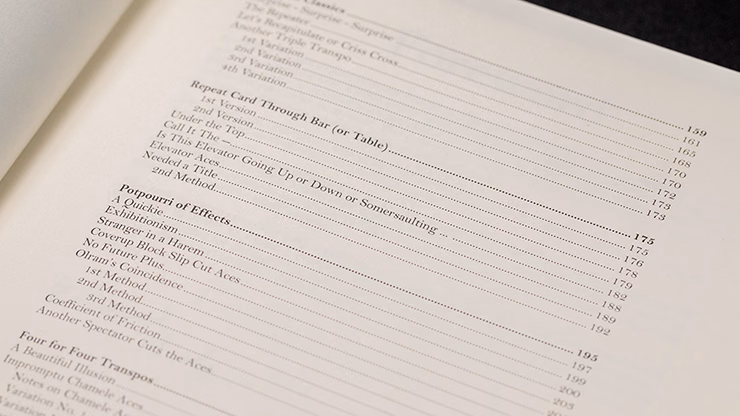 Classics........159
Surprise - Surprise........161
The Repeater........165
Let's Recapitulate or Criss Cross........168
Another Triple Transpo........170
1st Variation........170
2nd Variation........172
3rd Variation........173
4th Variation........173
Repeat Card Through Bar (or Table)........175
1st Version........175
2nd Version........176
Under the Top........178
Call It The —........179
Is This Elevator Going Up or Down or Somersaulting ...........182
Elevator Aces........188
Needed a Title........189
2nd Method........192
Potpourri of Effects........195
A Quickie........197
Exhibitionism........199
Stranger in a Harem........200
Coverup Block Slip Cut Aces........203
No Future Plus
Olram's Coincidence
1st Method
2nd Method
3rd Method
Coefficient of Friction
Another Spectator Cuts the Aces
Four for Four Transpos
A Beautiful Illusion
Impromptu Chamele Aces
Notes on Chamele Ac
Variation No. 1
Variation